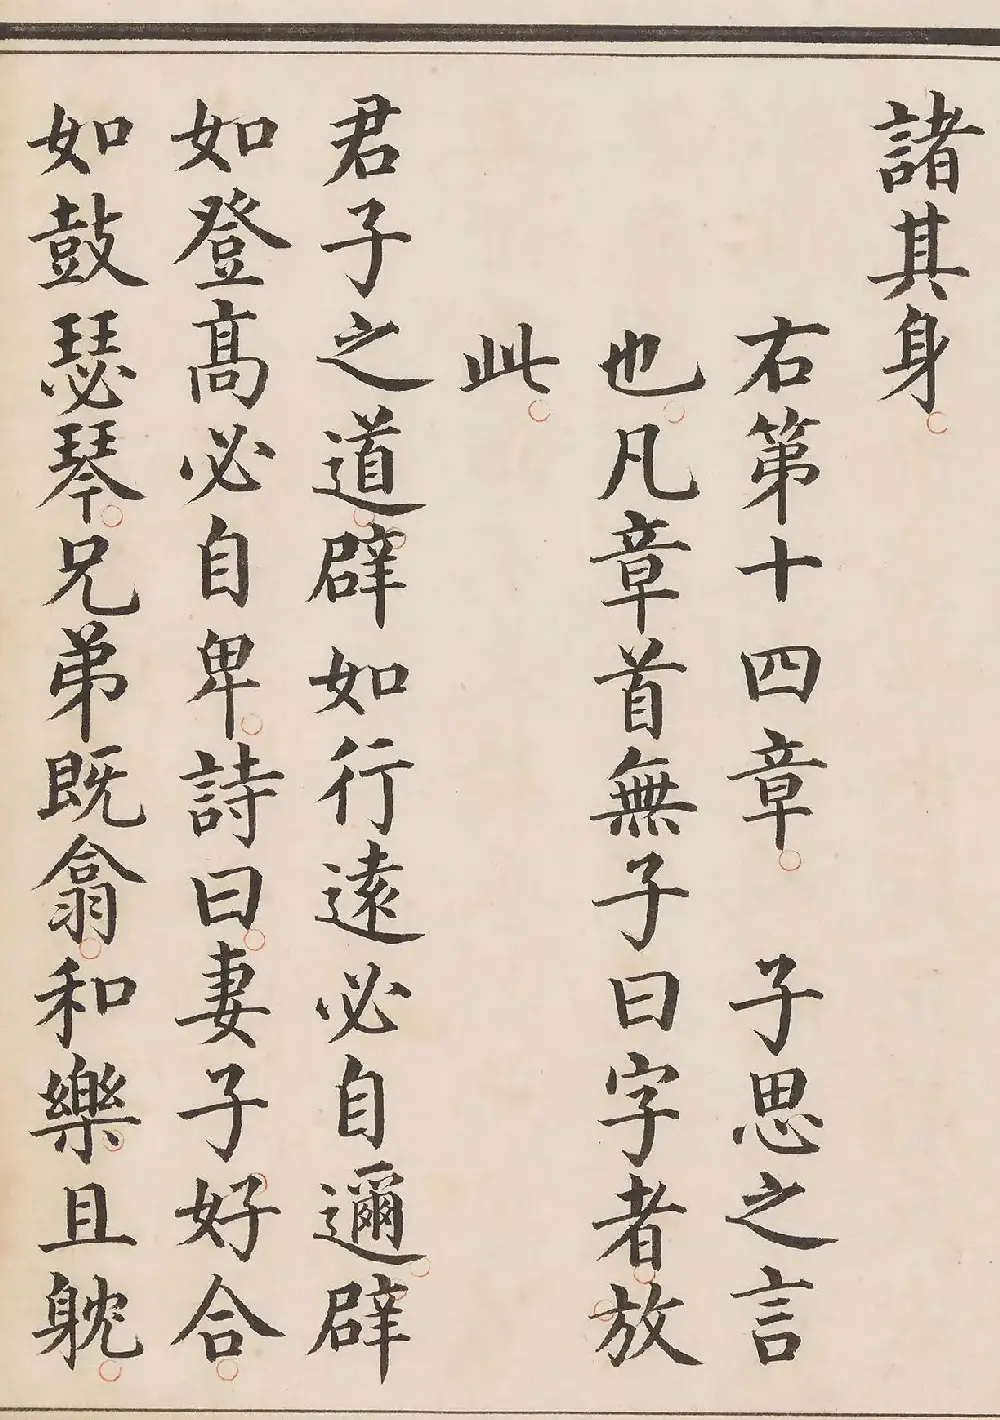 諸其身
右第十四章　子思之言
也凡章首無子曰字者放
此
君子之道辟如行遠必自邇辟
如登高必自卑詩曰妻子好合
如鼓瑟琴兄弟既翕和樂且躭